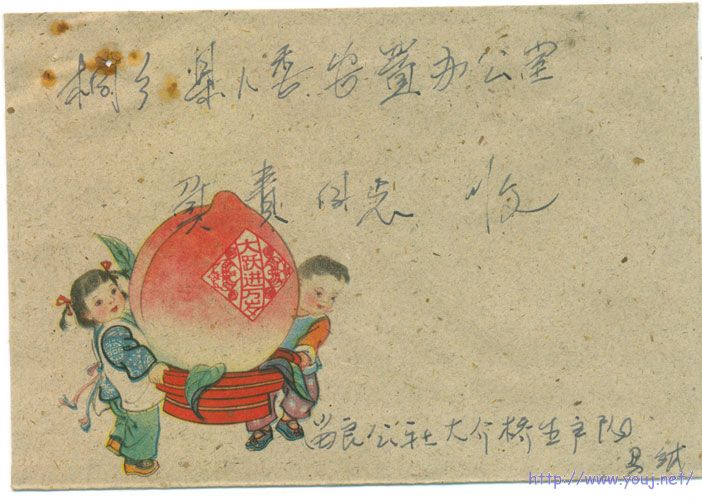 桐乡县人委安置办公室
负责同志 收
大跃进万岁
公社大介桥生产队
http://www.youj.net/